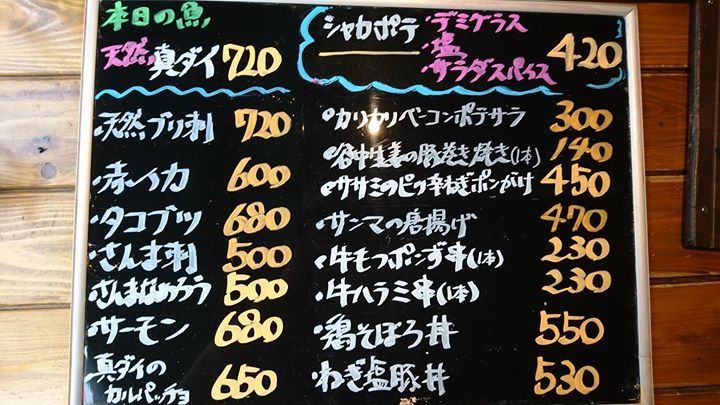 本日の魚
天然真ダイ 720
・天然ブリ刺 720
・赤イカ 600
・タコブツ 680
・さんま刺 500
・さんまなめろう 500
・サーモン 680
真ダイの
カルパッチョ 650
シャカポテ ・デミグラス
・塩
・サラダスパイス
420
・カリカリベーコンポテサラ 300
・谷中生姜の豚巻き焼き(1本) 140
・ササミのピリ辛ねぎポンがけ 450
・サンマの唐揚げ 470
・牛もつポンず串(1本) 230
・牛ハラミ串(1本) 230
・鶏そぼろ丼 550
・ねぎ塩豚丼 530